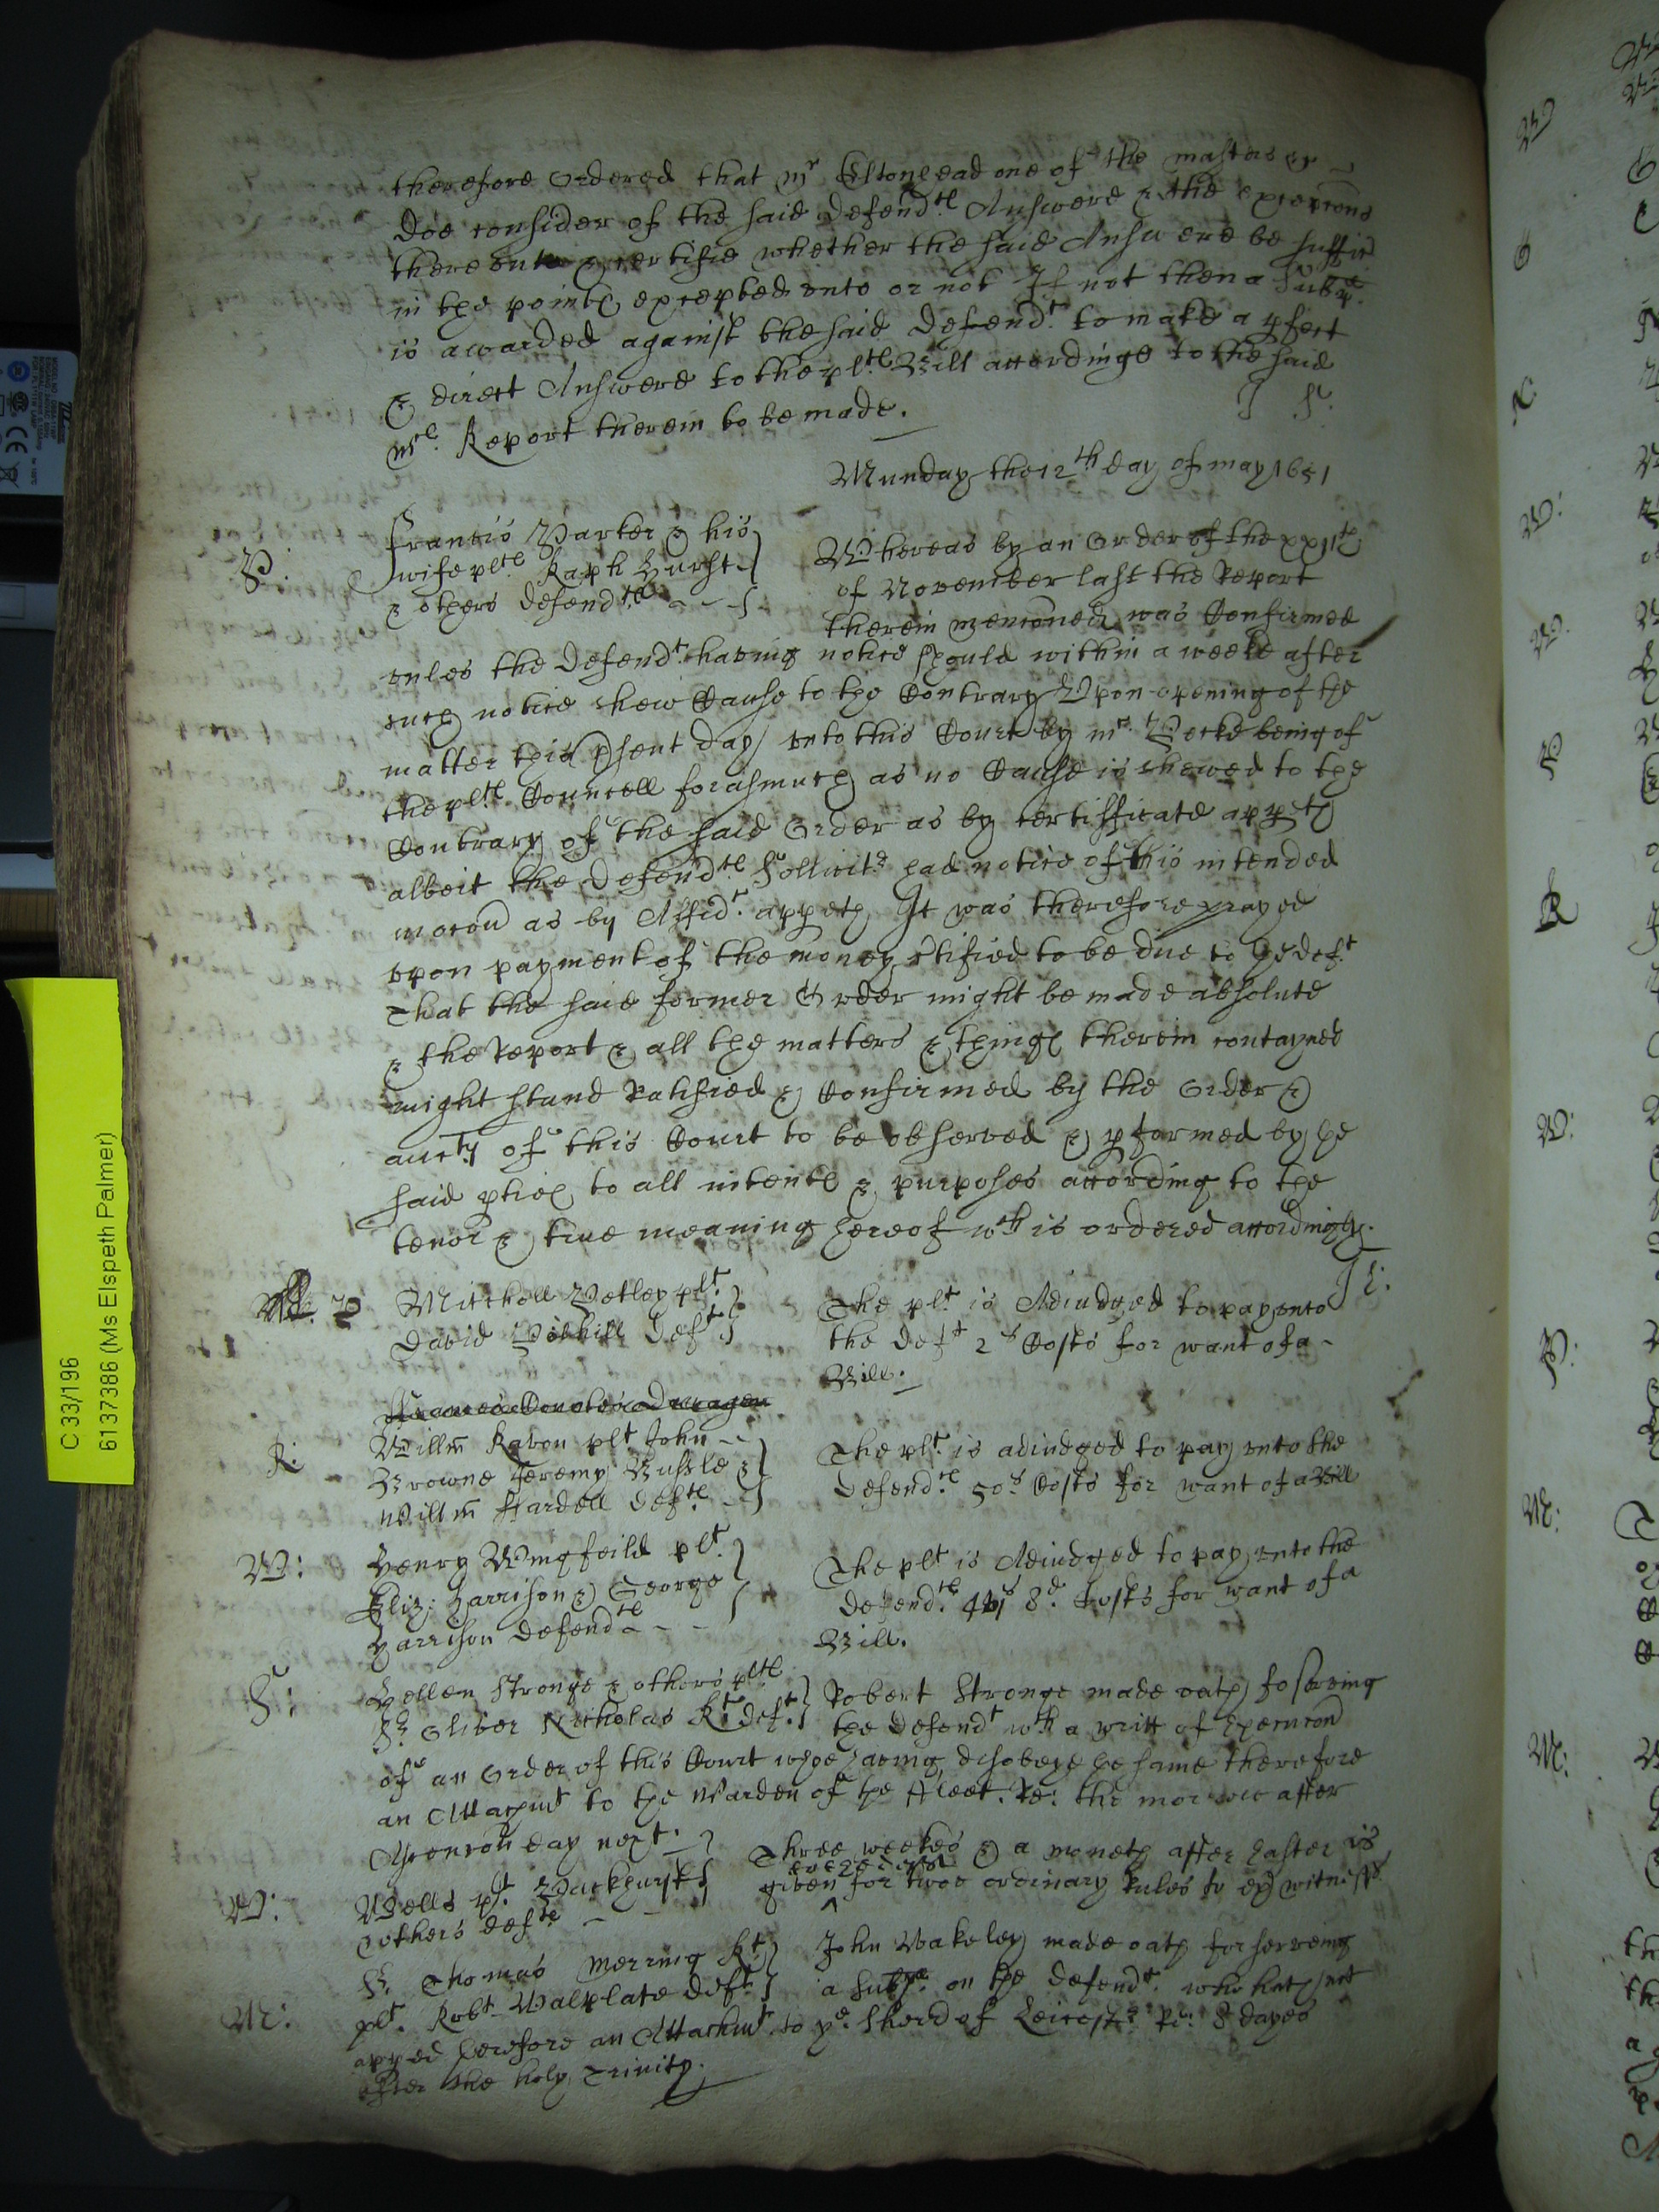 therefore Ordered that mr Eltonhead one of the masters &c
doe consider of the said defendts Answere & the exceptions
thereunto & certifie whether the said Answere be suffict
in the points excepted unto or not If not then a Subpa.
is awarded against the said defendt. to make a pfect
& direct Answere to the plts Bill accordinge to the said
mrs. Report therein to be made.
Munday the 12th day of may 1651
P.
Francis Parker & his
wife plts Raph Hurst
& others defendts
Whereas by an Order of the xxiith
of November last the Report
therein mencioned was Confirmed
unles the defendt. having notice should within a weeke after
such notice shew Cause to the Contrary Upon opening of the
matter this psent day unto this Court by mr. Pecke being of
the plts. Councell forasmuch as no Cause is shewed to the
Contrary of the said Order as by certifficate appeth
albeit the defendts Sollicitr had notice of this intended
mocon as by Affidt. appeth It was therefore prayed
upon payment of the money ctified to be due to the deft
That the said former Order might be made absolute
& the Report & all the matters & things therein contayned
might stand Ratified & Confirmed by the Order &
aucty of this Court to be observed & pformed by the
said pties to all intents & purposes according to the
tenor & true meaning hereof wch is ordered accordingly.
Mitchell Petley plt.
David Polhill Deft
The plt. is Adiudged to pay unto
the deft 2s Costs for want of a
Bill.
R:
Willm Raven plt John
Browne Jeremy Bussle &
Willm Hardell defts
The plt. is adiudged to pay unto the
defendts 50s Costs for want of a Bill
W:
Henry Wingfeild plt.
Eliz: Harrison & George
Harrison defendts
The plt is Adiudged to pay unto the
defendts 8d. Costs for want of a
Bill.
S:
Hellen Stronge & others plts
Sr Oliver Nicholas Kt deft.
Robert Stronge made oath fo serving
the defendt wth a writt of Execucon
of an Order of this Court whoe having disobeyed the same therefore
an Attachmt to the Warden of the Fleet. Re: the morrow after
Ascencon day next.
W:
Wells plt. Buckhurst
& others defts
Three weekes & a moneth after Easter is
given for twoe ordinary Rules to ex witnesses
M:
Sr. Thomas Merring Kt
plt. Robt Walplate deft
John Wakeley made oath for serveing
a Subpa. on the defendt. who hath not
apped therefore an Attachmt. to ye. Sherd of Leicestr Re: 8 dayes
after the holy Trinity.
C 33/196
6137386 (Ms Elspeth Palmer)